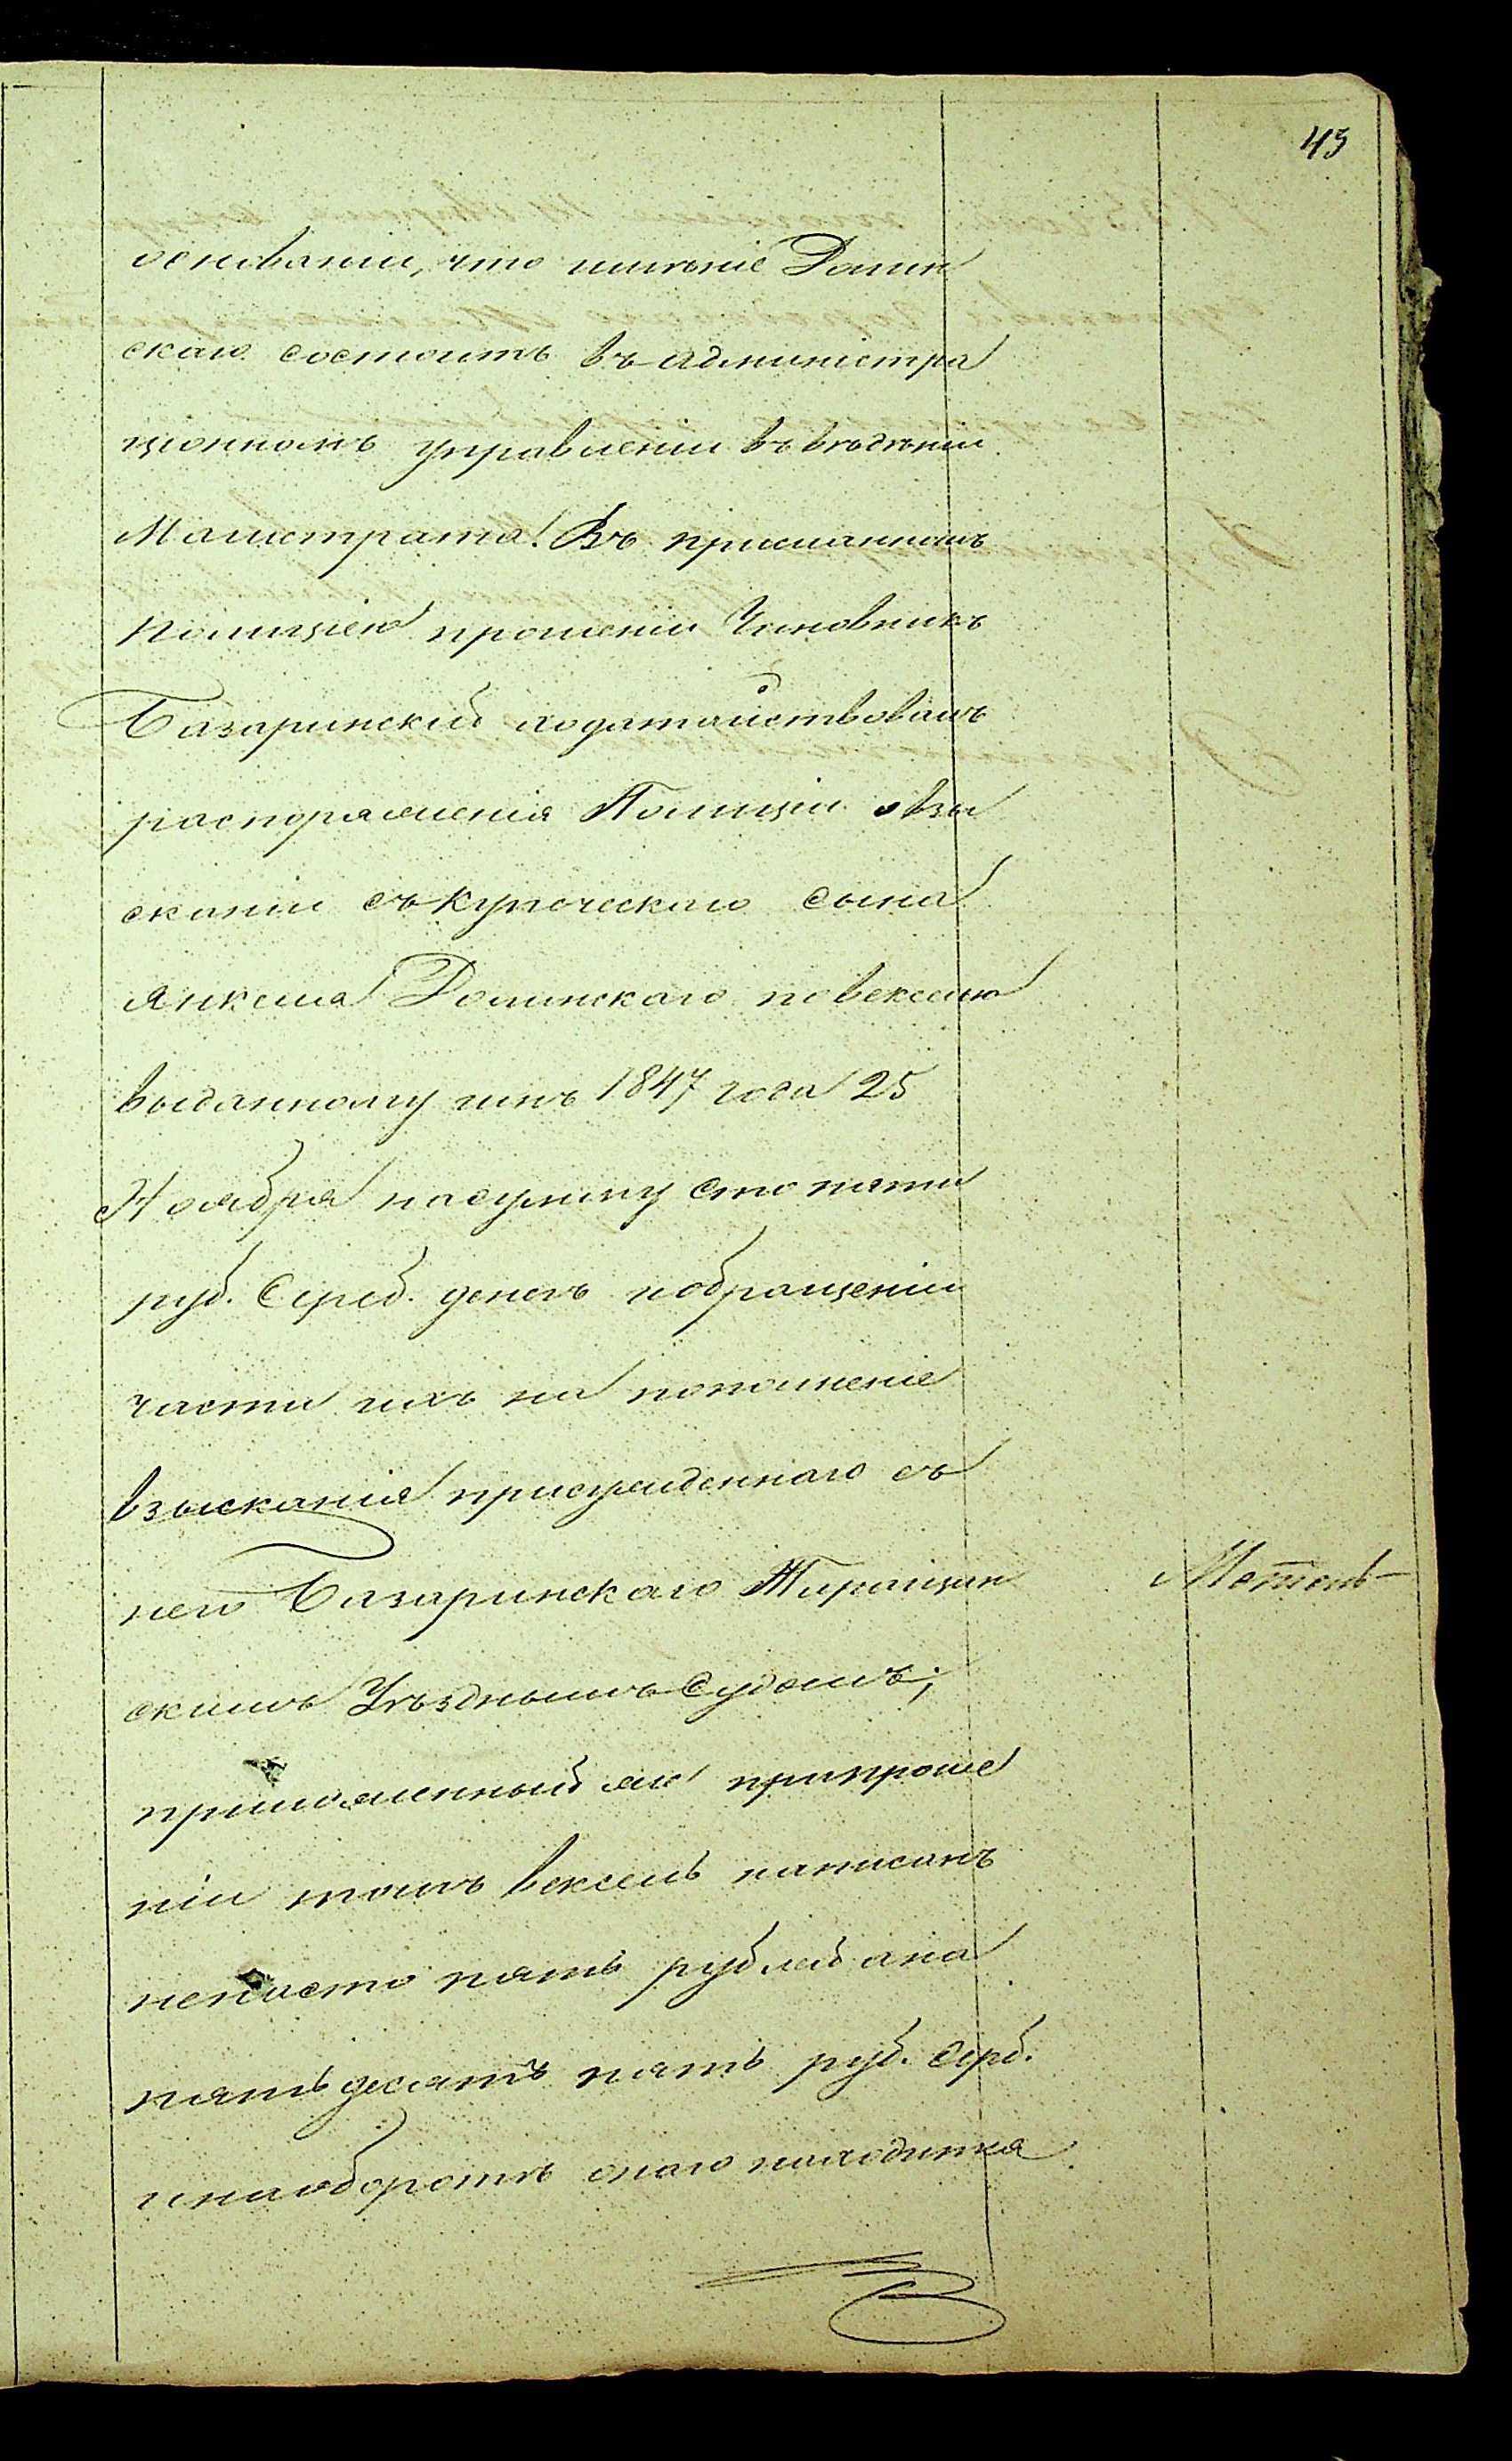 45
основаніи, что имѣніе Долин
скаго состоитъ въ админістра
ціонномъ управленіи въ вѣденіи
Магистрата. Въ присланномъ
Полиціею прошеніи Чиновникъ
Базаринскій ходатайствовалъ
распоряженія Полиціи о взы
сканіи съ купеческаго сына
Янкеля Долинскаго по векселю
выданному имъ 1847 года 25
Ноября на сумму сто пяти
руб. Сереб. денегъ и обращеніи
части ихъ на пополненіе
взысканія присужденнаго съ
него Базаринскаго Тиращин
скимъ Уѣзднымъ Судомъ;
приложенный же при проше
ніи томъ вексель написанъ
не на сто пять рублей а на
пятьдесятъ пять руб. серб.
и на оборотѣ онаго находится